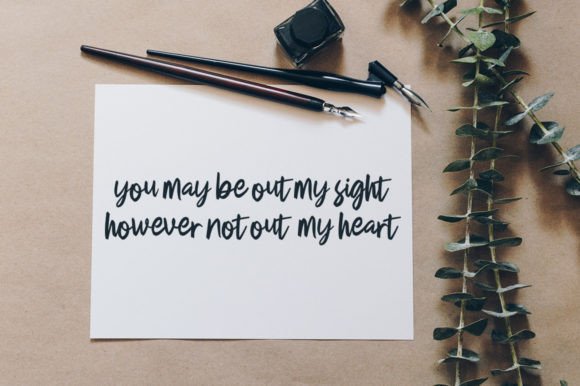 you may be out my sight
however not out my heart